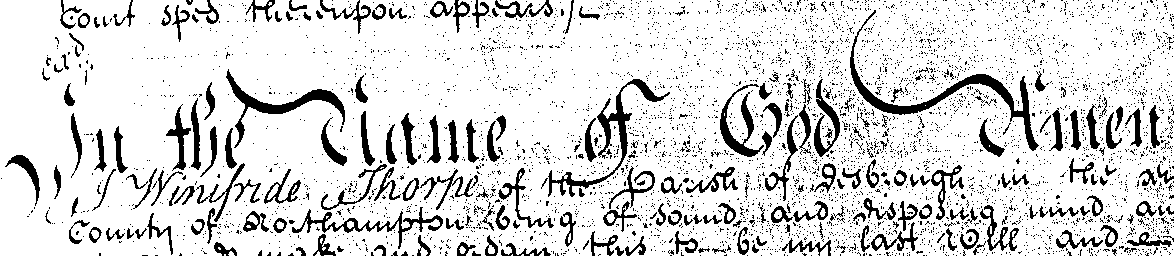 Court sped thereupon appears./
exd
In the Name of God Amen
I Winifride Thorpe of the Parish of Desbrough in the
County of Northampton being of sound and disposing mind an
make and ordain this to be my last Will and